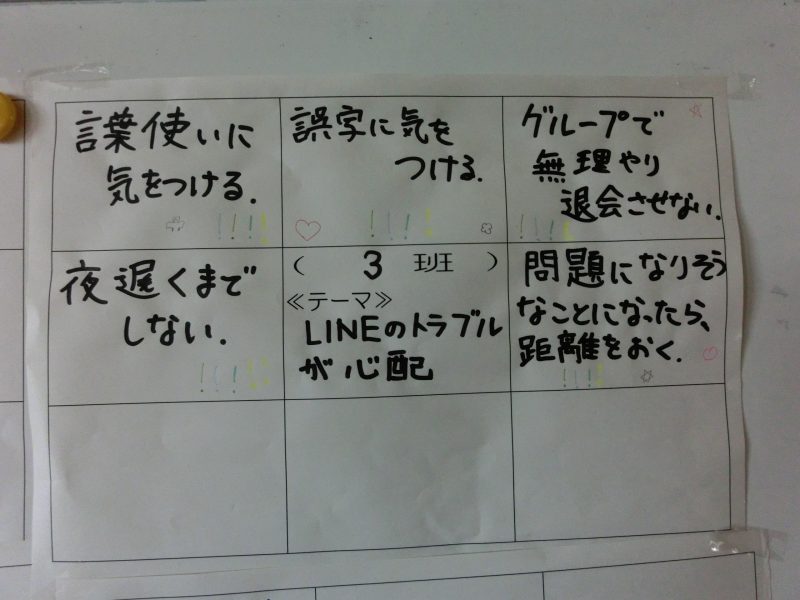 言葉使いに
気をつける.
誤字に気を
つける.
グループで
無理やり
退会させない.
夜遅くまで
しない.
( 3 班 )
≪テーマ≫
LINEのトラブル
が心配
問題になりそう
なことになったら、
距離をおく.